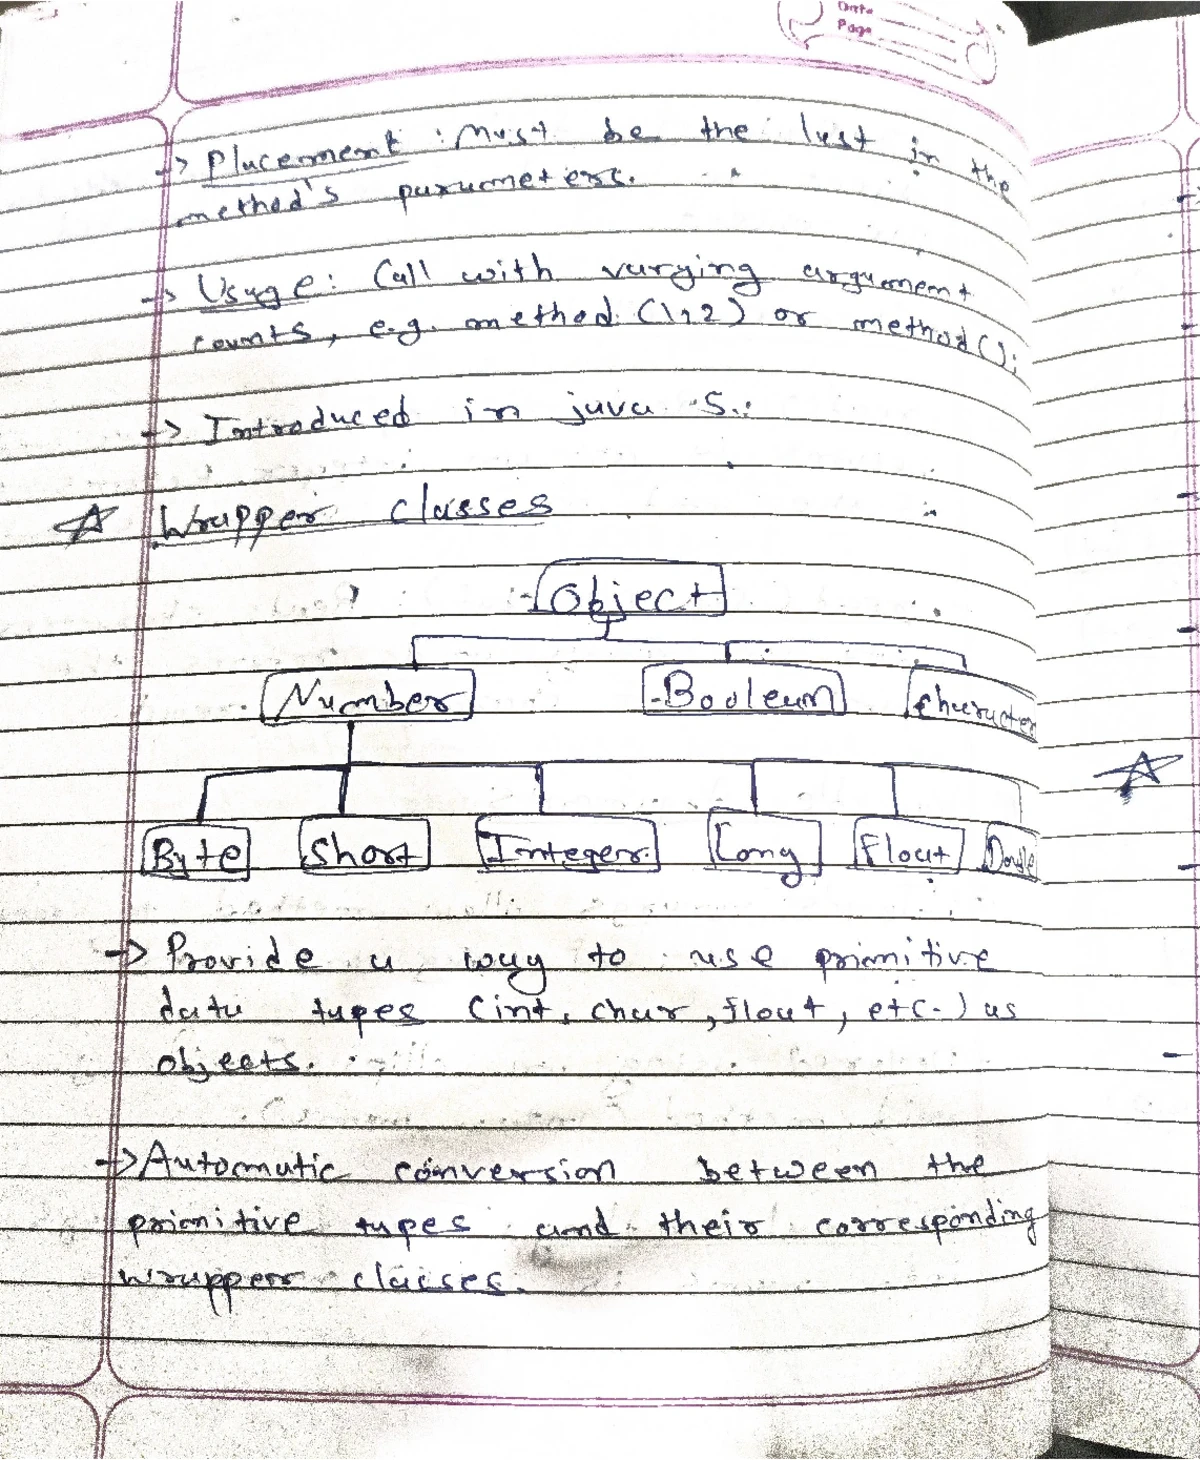 Date
Page
-> Placement : Must be the last in the
method's parameters.
-> Usage: Call with varying argument
counts, e.g. method (1,2) or method();
-> Introduced in java 5.
☆ Wrapper classes
Object
Number Boolean Character
Byte Short Integer Long Float Double
-> Provide a way to use primitive
data types (int, char, float, etc.) as
objects.
-> Automatic conversion between the
primitive types and their corresponding
wrapper classes.
☆